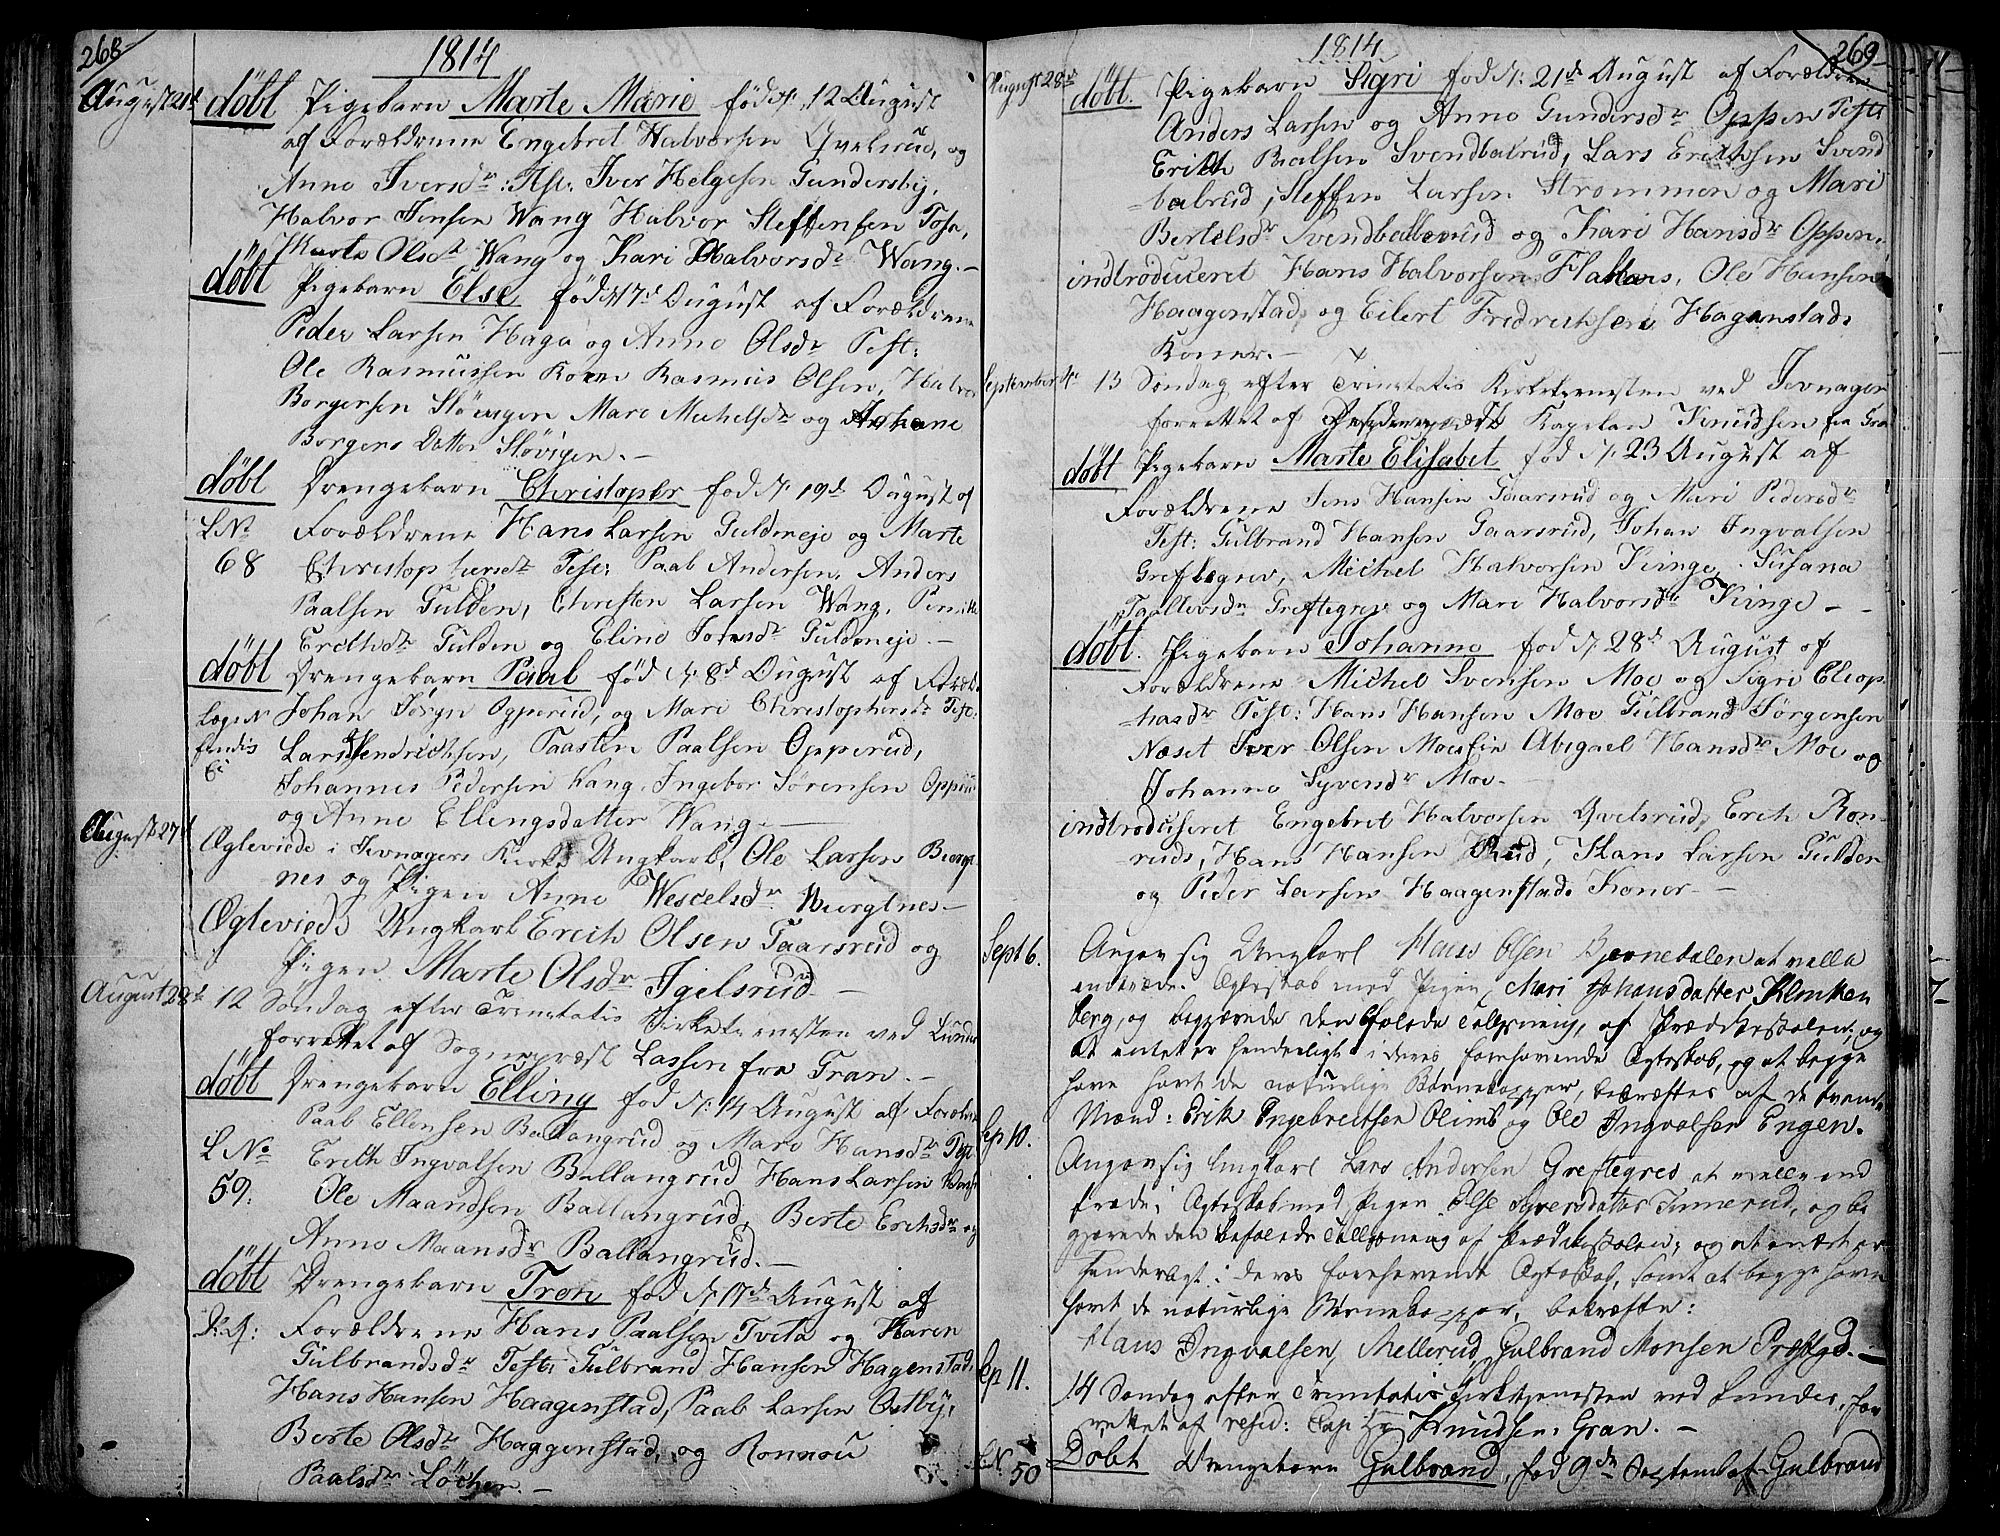 268
1814
August 21d
döbt Pigebarn Marte Marie född d: 12 August
af Forældrene Engebret Halvorsen Qvelsrud, og
Anne Iversdr: Test: Iver Helgesen Gundersby,
Halvor Jensen Wang Halvor Steffensen Tosa,
Marte Olsdr Wang og Kari Halvorsdr Wang. –
döbt Pigebarn Else född 17d August af Forældrene
Peder Larsen Haga og Anne Olsdr Test:
Ole Rasmussen Rasmus Olsen, Halvor
Borgersen Slövigen Mari Michelsdr og Johane
Borgers Datter Slövigen. –
döbt Drengebarn Christopher född d: 19d August af
LNo Forældrene Hans Larsen Guldeneje og Marte
68 Christophersdr Test: Paal Andersen, Anders
Paalsen Gulden, Christen Larsen Wang,
Erichsdr Gulden og Eline Guldeneje –
döbt Drengebarn Paal född d: 8d August af
Johan Opperud, og Mari Christophersdr Test:
Lars Hendrichsen, Paalsen Opperud,
Ei
Johannes Pedersen Wang, Ingebor Sörensen
og Anne Ellingsdatter Wang –
August 27d
Ægteviede i Jevnagers Kirke Ungkarl Ole Larsen
og Pigen Anne Wescelsdr
Ægteviede Ungkarl Erich Olsen Gaarsrud og
Pigen Marte Olsdr Igelsrud –
August 28d 12 Söndag efter Trinetatis Kirketienesten ved Lunder
forrettet af Sognepræst Lassen fra Gran. –
döbt Drengebarn Elling fod d: 14 August af Forældre
Paal Ellensen Ballangrud og Mari Hansdr Test
LNo Erich Ingvalsen Ballangrud Hans Larsen
59. Ole Maansen Ballangrud, Berte Erichsdr og
Anne Maansdr Ballangrud. –
döbt Drengebarn Tron fod d: 17de August af
Forældrene Hans Paalsen Tveta og Karen
Gulbrandsdr Test: Gulbrand Hansen Hagenstad,
Hans Hansen Haagenstad, Paal Larsen Östby,
Berte Olsdr Haggenstad, og Ronnou
Paalsdr Löchen. –
269
1814
August 28d
döbt. Pigebarn Sigri fod d: 21d August af Forældrene
Anders Larsen og Anne Gundersdr Oppen Test:
Erich Svendbalrud, Lars Erichsen Svend
balrud, Steffen Larsen Strommen og Mari
Bertelsdr Svendballerud og Kari Hansdr Oppen.
indtroduceret Hans Halvorsen Flattars, Ole Hansen
Haagenstad, og Eilert Fredrechsen Hagenstads
Koner. –
September 4d 13 Söndag efter Trinetatis Kirketienesten ved Jevnager
forrettet af Kapelan Knudsen fra Gran
döbt Pigebarn Marte Elisabet fod d: 23 August af
Forældrene Jens Hansen Gaarsrud og Mari Pedersdr
Test: Gulbrand Hansen Gaarsrud, Johan Ingvalsen
Greftegrev, Michel Halvorsen Kinge, Susana
Greftegrev og Mari Halvorsdr Kinge – –
döbt. Pigebarn Johanne fod d: 28d August af
Forældrene Michel Svensen Moe og Sigri Eliop
hasdr Test: Hans Hansen Moe Gulbrand Jörgensen
Næset Iver Olsen Moe Abigael Hansdr Moe og
Johanne Syvensdr Moe –
indtroduseret Engebret Halvorsen Qvelsrud, Erich Ron-
ruds, Hans Hansen Rud, Hans Larsen Gulden
og Peder Larsen Haagenstads Koner –
Sept 6. Angav sig Ungkarl Hans Olsen Bjennedalen at ville
indtræde i Ægteskab med Pigen, Mari Johansdatter Klonken
berg, og begjærede den befalede Tillysning, af Prædikestolen, og
at intet er henderligt i deres forehavende Ægteskab, og at begge
have havt de naturlige Børnekopper, bekræftes af de tvende
Mænd: Erik Ingebreitsen Olimb og Ole Ingvalsen Engen.
Sep 10. Angav sig Ungkarl Lars Andersen Greftegrev at ville ind
træde i Ægteskab med Pigen Else Syversdatter Timerud, og be
gjærede den befalede Tillysning af Prædikestolen; og at intet er
henderligt i deres forehavende Ægteskab, samt at begge have
havt de naturlige Børnekopper, bekræfte:
Hans Ingvalsen, Mellerud, Gulbrand Monsen Præstgd. –
Sep 11. 14 Søndag efter Trinitatis Kirketjenesten ved Lunder, for
rettet af resid: Cap: Hr Knudsen. Gran. –
LN. 50 Døbt Drengebarn Gulbrand, fød 9de Septemb af Gulbrand